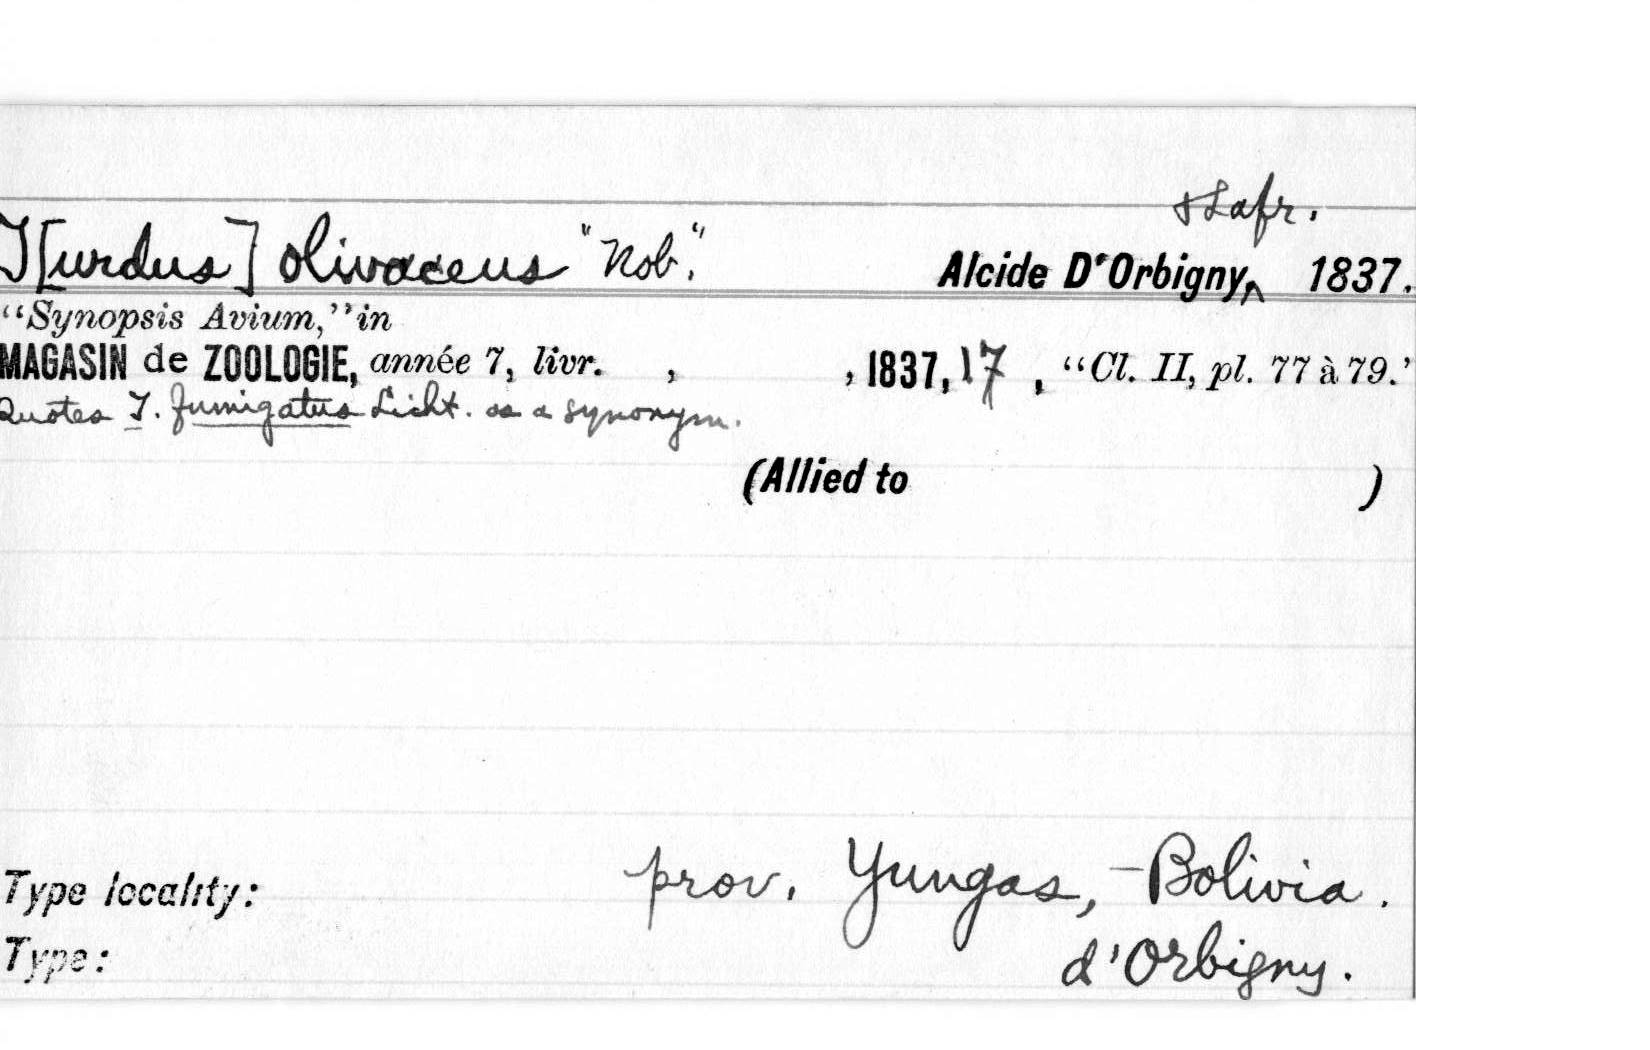 & Lafr.
T[urdus] olivaceus "Nob." Alcide D'Orbigny,^ 1837.
"Synopsis Avium," in
MAGASIN de ZOOLOGIE, année 7, livr. , , 1837, 17 , "Cl. II, pl. 77 à 79.'
Quotes T. fumigatus Licht. as a synonym.
(Allied to )
Type locality: prov. Yungas, Bolivia.
Type: d'Orbigny.